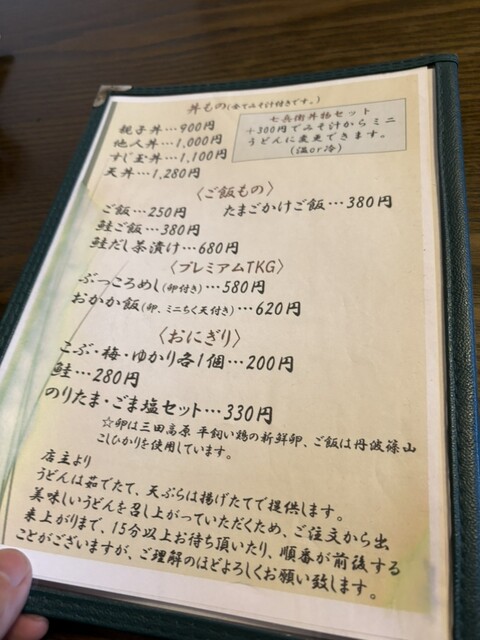 丼もの(全てみそ汁付きです。)
親子丼…900円
他人丼…1,000円
すじ玉丼…1,100円
天丼…1,280円
七兵衛丼物セット
+300円でみそ汁からミニ
うどんに変更できます。
(温or冷)
〈ご飯もの〉
ご飯…250円 たまごかけご飯…380円
鮭ご飯…380円
鮭だし茶漬け…680円
〈プレミアムTKG〉
ぶっころめし(卵付き)…580円
おかか飯(卵、ミニちく天付き)…620円
〈おにぎり〉
こぶ・梅・ゆかり各1個…200円
鮭…280円
のりたま・ごま塩セット…330円
☆卵は三田高原 平飼い鶏の新鮮卵、ご飯は丹波篠山
こしひかりを使用しています。
店主より
うどんは茹でたて、天ぷらは揚げたてで提供します。
美味しいうどんを召し上がっていただくため、ご注文から出
来上がりまで、15分以上お待ち頂いたり、順番が前後する
ことがございますが、ご理解のほどよろしくお願い致します。